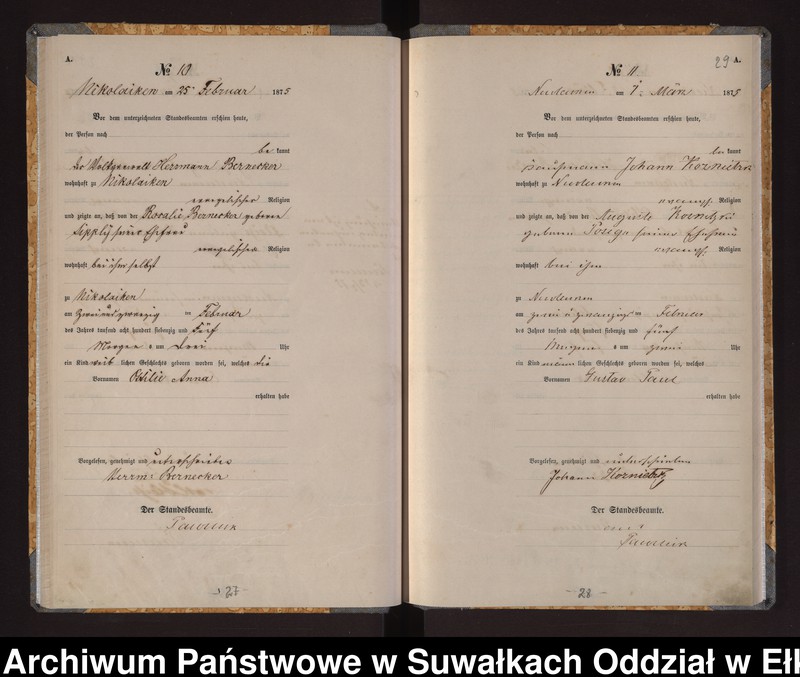 A.
№ 10
Nikolaiken am 25 Februar 1875
Vor dem unterzeichneten Standesbeamten erschien heute,
der Person nach
be kannt
Der Herrmann Bernecker
wohnhaft zu Nikolaiken
evangelischer Religion
und zeigte an, daß von der Rosalie Bernecker geborene
seine Ehefrau
evangelischer Religion
wohnhaft bei ihm selbst
zu Nikolaiken
am zweiundzwanzig ten Februar
des Jahres tausend acht hundert siebenzig und fünf
Morgen s um drei Uhr
ein Kind weib lichen Geschlechts geboren worden sei, welches die
Vornamen Ottilie Anna
erhalten habe
Vorgelesen, genehmigt und unterschrieben
Herrm: Bernecker
Der Standesbeamte.
27
29 A.
№ 11
am 1: März 1875
Vor dem unterzeichneten Standesbeamten erschien heute,
der Person nach
be kannt
Johann
wohnhaft zu
evang. Religion
und zeigte an, daß von der Auguste
geborene seine Ehefrau
evang. Religion
wohnhaft bei ihm
zu
am zwei u zwanzig ten Februar
des Jahres tausend acht hundert siebenzig und fünf
Morgen s um zwei Uhr
ein Kind männ lichen Geschlechts geboren worden sei, welches
Vornamen Gustav
erhalten habe
Vorgelesen, genehmigt und unterschrieben
Johann
Der Standesbeamte.
28
Archiwum Państwowe w Suwałkach Oddział w Ełk